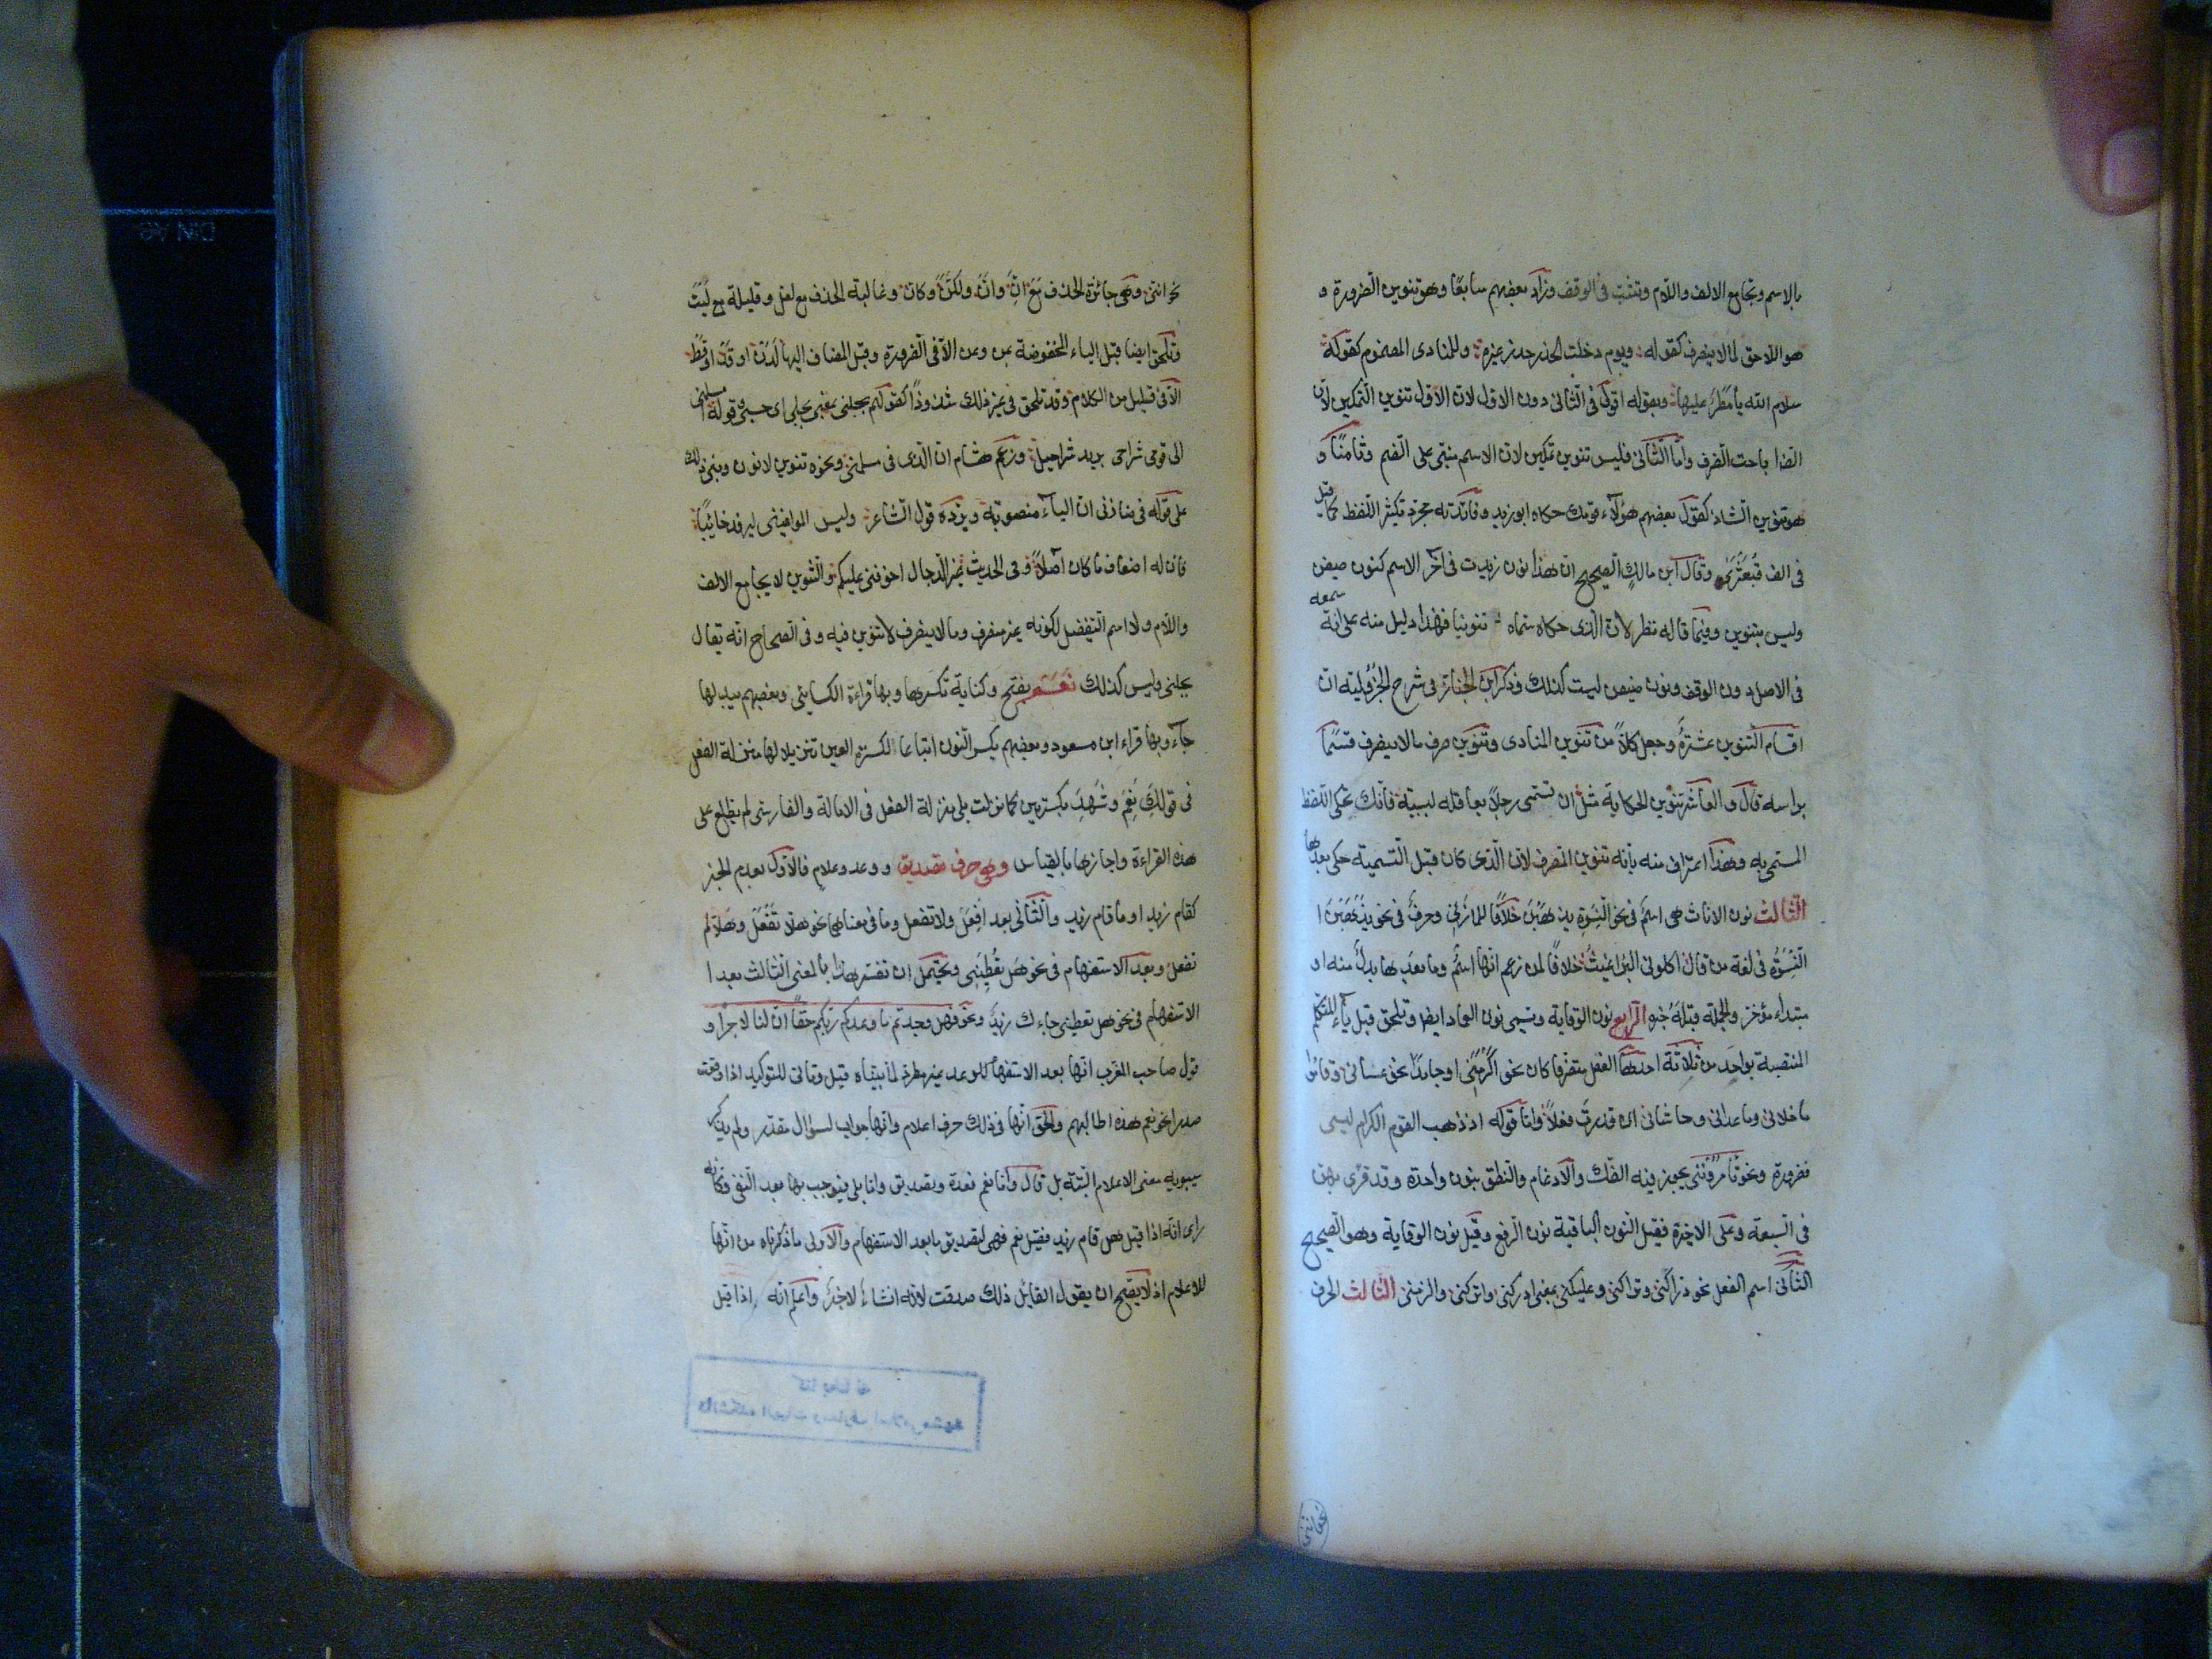 بالاسم وتجامع الالف واللام وتثبت فى الوقف وزاد بعضهم سابعًا وهو تنوين الضرورة و
هو اللاحق لما لا ينصرف كقوله ويوم دخلت الخدر خدر عنيزة وللمنادى المضموم كقوله
سلام الله يا مطرٌ عليها وبقوله اقول فى الثانى دون الاول لان الاول تنوين التمكين لان
الضرورة اباحت الصرف واما الثانى فليس تنوين تمكين لان الاسم مبنى على الضم وثامنًا و
هو تنوين الشاذ كقول بعضهم هؤلاءٍ قومك حكاه ابو زيد وفائدته مجرد تكثير اللفظ كما قيل
فى الف قبعثرى وقال ابن مالك الصحيح ان هذا نون زيدت فى آخر الاسم كنون ضيفن
وليس بتنوين وفيما قاله نظر لان الذى حكاه سماه تنوينا فهذا دليل منه على انه سمعه
فى الاصل دون الوقف ونون ضيفن ليست كذلك وذكر ابن الخباز فى شرح الجزولية ان
اقسام التنوين عشرة وجعل كلا من تنوين المنادى وتنوين صرف ما لا ينصرف قسمًا
براسه قال والعاشر تنوين الحكاية مثل ان تسمى رجلا بعاقلة لبيبة فانك تحكى اللفظ
المسمى به وهذا اعتراف منه بانه تنوين الصرف لان الذى كان قبل التسمية حكى بعدها
الثالث نون الاناث هى اسم فى نحو النسوة يذهبن خلافًا للمازنى وحرف فى نحو يذهبن ا
النسوة فى لغة من قال اكلونى البراغيث خلافًا لمن زعم انها اسم وما بعدها بدل منه او
مبتداء مؤخر والجملة قبله خبره الرابع نون الوقاية وتسمى نون العماد ايضا وتلحق قبل ياء المتكلم
المنتصبة بواحد من ثلاثة احدها الفعل متصرفا كان نحو اكرمنى او جامدًا نحو عسانى وقاموا
ما خلانى وما عدانى وحاشانى ان قدرت فعلاً واما قوله اذ ذهب القوم الكرام ليسى
فضرورة ونحو تأمروننى يجوز فيه الفك والادغام والنطق بنون واحدة وقد قرئ بهن
فى السبعة وعلى الاخيرة فقيل النون الباقية نون الرفع وقيل نون الوقاية وهو الصحيح
الثانى اسم الفعل نحو دراكنى وتراكنى وعليكنى بمعنى ادركنى واتركنى والزمنى الثالث الحرف
نحو اننى
نحو اننى وهى جائزة الحذف مع انّ وانّ ولكنّ وكان وغالبة الحذف مع لعل وقليلة مع ليت
وتلحق ايضا قبل الياء المخفوضة بمن وعن الا فى الضرورة وقبل المضاف اليها لدن او قد او قط
الا فى قليل من الكلام وقد تلحق فى غير ذلك شذوذًا كقولهم بجلنى بمعنى بجلى اى حسبى وقوله امسلمنى
الى قومى شراحى يريد شراحيل وزعم هشام ان الذى فى مسلمنى ونحوه تنوين لا نون وبنى ذلك
على قوله فى ضاربنى ان الياء منصوبة ويرده قول الشاعر وليس الموافينى ليرفد خائبًا
فان له اضعاف ما كان آملاً وفى الحديث غير الدجال اخوفنى عليكم والتنوين لا يجامع الالف
واللام ولا اسم التفضيل لكونه غير منصرف وما لا ينصرف لا تنوين فيه وفى الصحاح انه يقال
بجلنى وليس كذلك نعم بفتح وكنانة تكسرها وبها قراءة الكسائى وبعضهم يبدلها
حاء وبها قراء ابن مسعود وبعضهم يكسر النون اتباعا لكسرة العين تنزيلا لها منزلة الفعل
فى قولك نِعِم وشِهِد بكسرتين كما نزلت بلى منزلة الفعل فى الامالة والفارسى لم يطلع على
هذه القراءة واجازها بالقياس وهى حرف تصديق ووعد وعلام فالاول بعد الخبر
كقام زيد او ما قام زيد والثانى بعد افعل ولا تفعل وما فى معناهما نحو هلا تفعل وهلا لم
تفعل وبعد الاستفهام فى نحو هل تعطينى ويحتمل ان تفسر هذا بالمعنى الثالث بعد ا
الاستفهام فى نحو هل تعطينى جاءك زيد ونحو فهل وجدتم ما وعدكم ربكم حقًا ان لنا لاجرًا و
قول صاحب المقرب انها بعد الاستفهام للوعد غير مطرد لما بيناه قيل وتاتى للتوكيد اذا وقعت
صدرا نحو نعم هذه اطلالهم والحق انها فى ذلك حرف اعلام وانها جواب لسؤال مقدر ولم يذكر
سيبويه معنى الاعلام البتة بل قال واما نعم فعدة وتصديق واما بلى فيوجب بها بعد النفى وكانه
راى انه اذا قيل هل قام زيد فقيل نعم فهى لتصديق ما بعد الاستفهام والاولى ما ذكرناه من انها
للاعلام اذ لا يصح ان يقول القايل ذلك صدقت لانه انشاء لا خبر واعلم انه اذا قيل